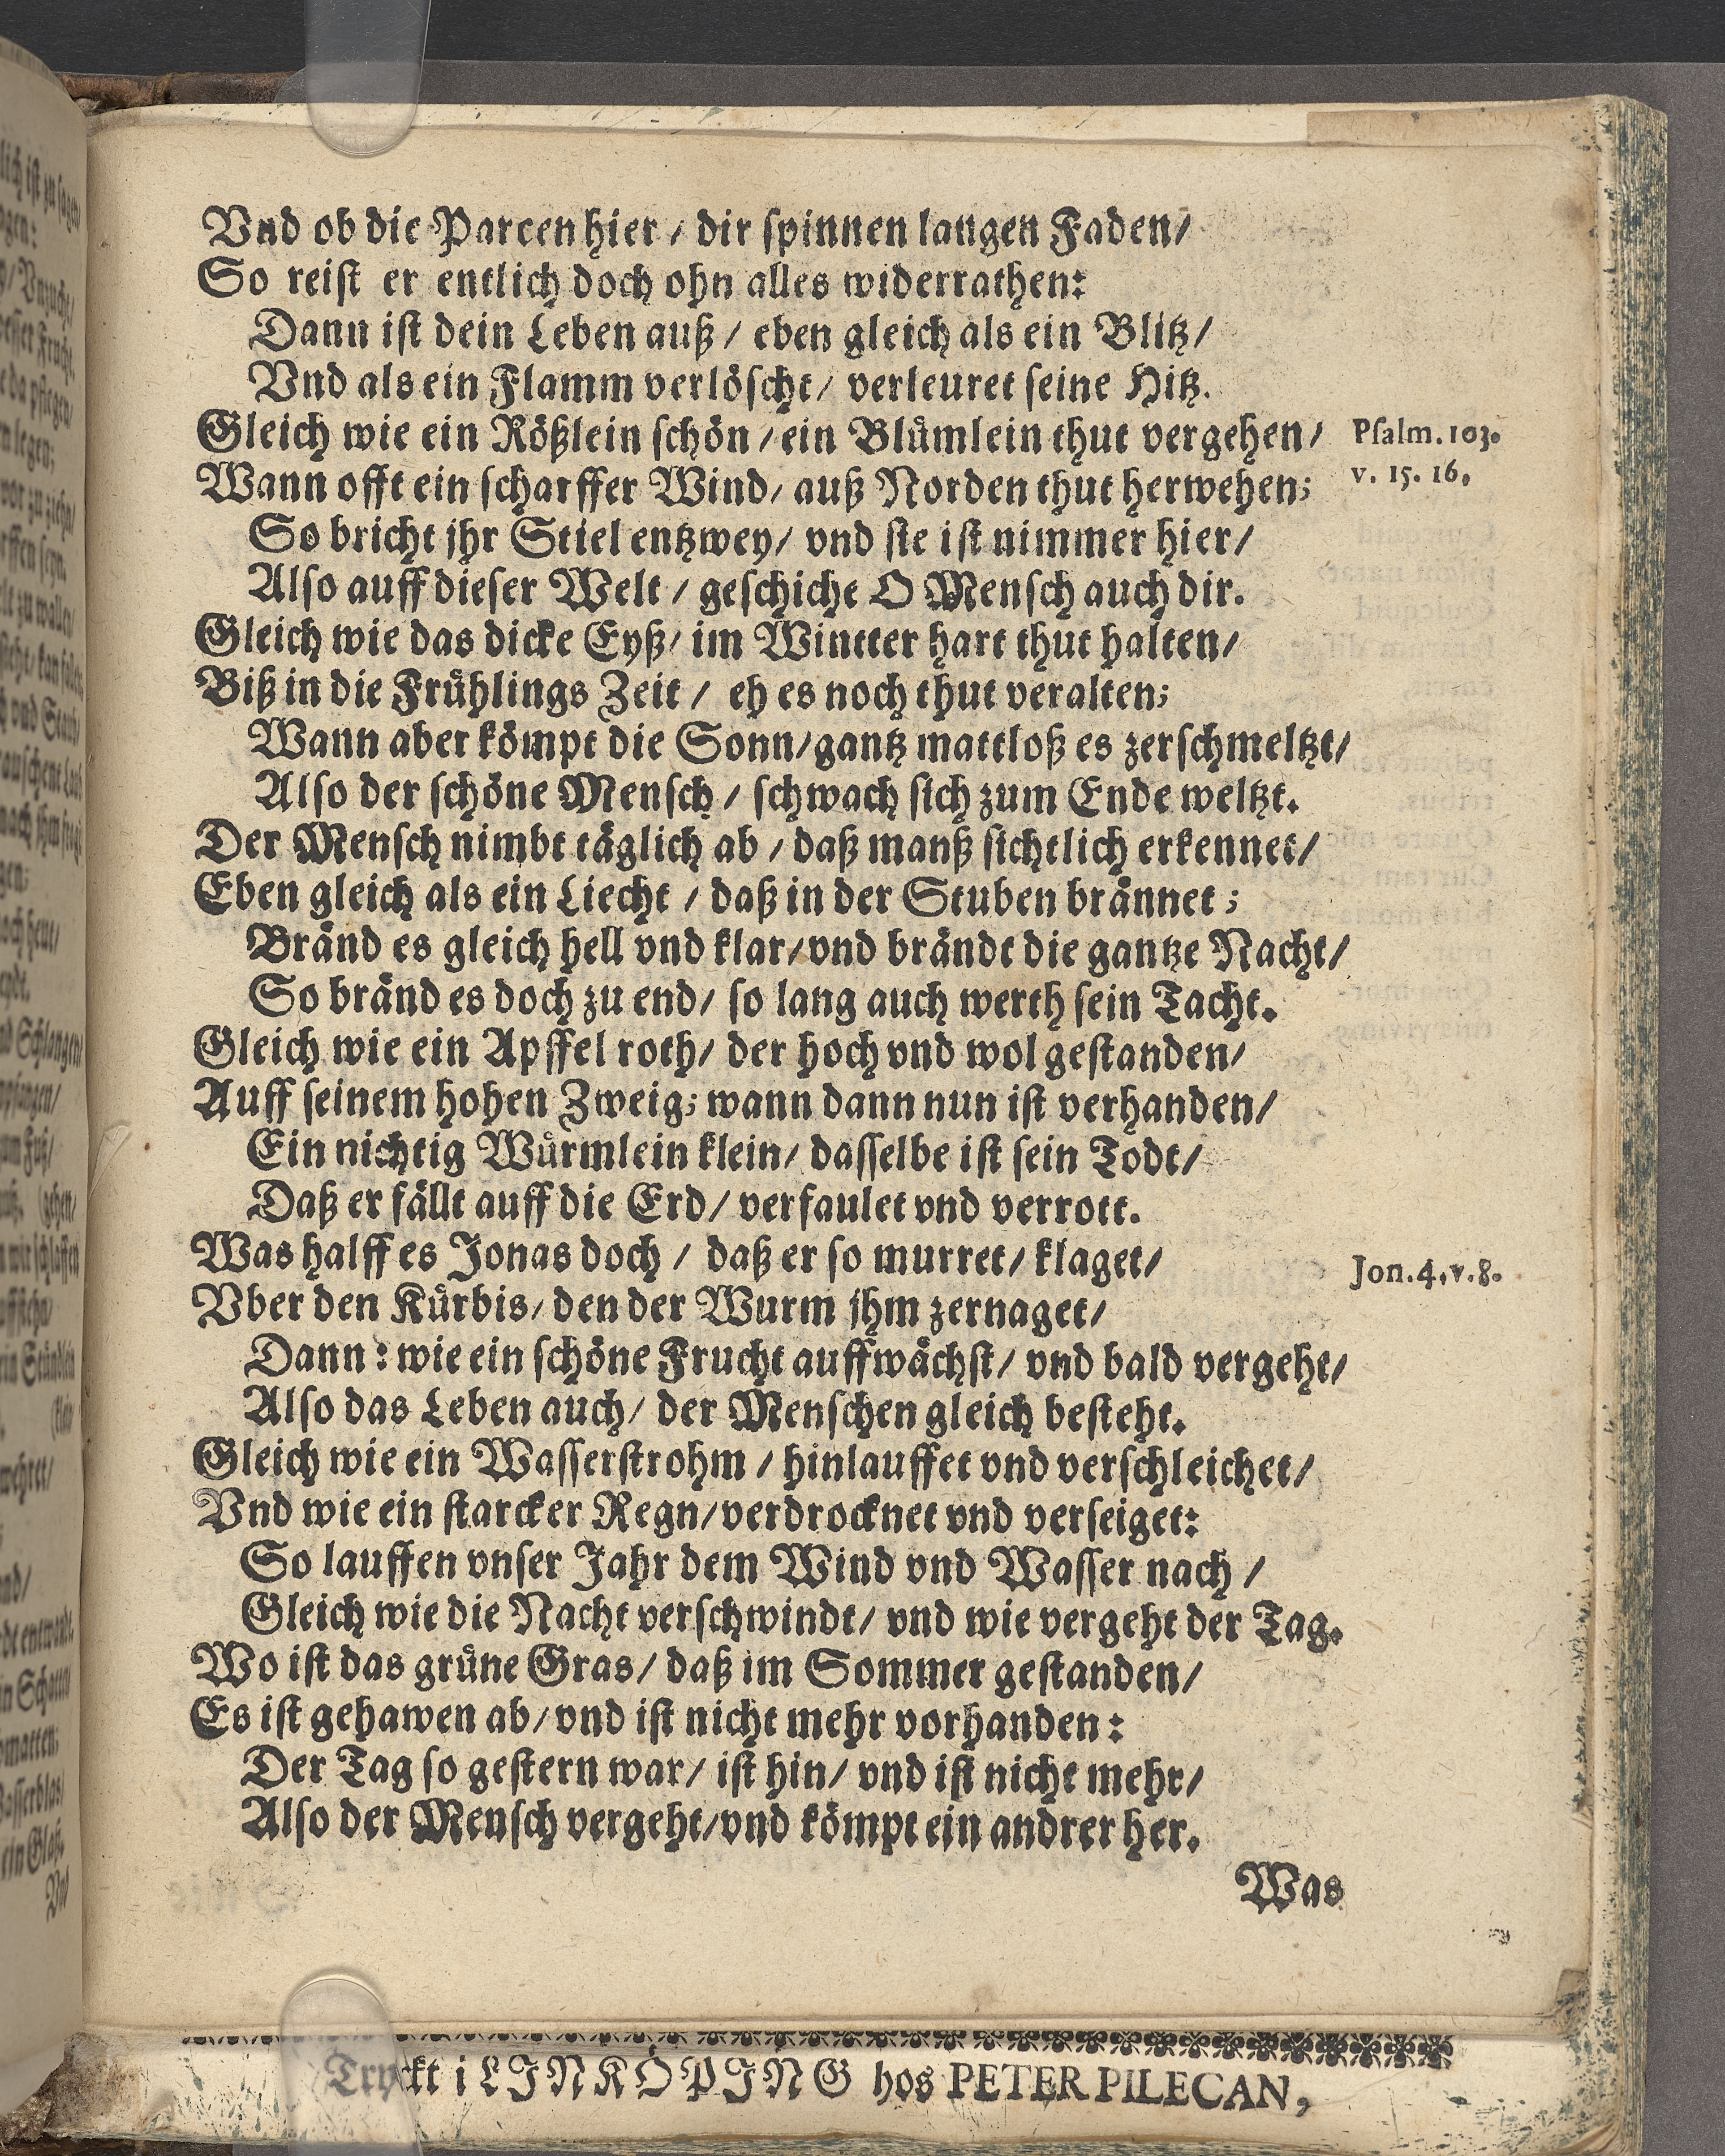 Vnd ob die Parcen hier / dir spinnen langen Faden/
So reist er entlich doch ohn alles widerrathen:
Dann ist dein Leben auß / eben gleich als ein Blitz /
Vnd als ein Flamm verlöscht / verleuret seine Hitz.
Gleich wie ein Rößlein schön / ein Blümlein thut vergehen /
Psalm. 103.
Wann offt ein scharffer Wind / auß Norden thut herwehen;
v. 15. 16.
So bricht jhr Stiel entzwey / vnd sie ist nimmer hier /
Also auff dieser Welt / geschicht O Mensch auch dir.
Gleich wie das dicke Eyß / im Wintter hart thut halten /
Biß in die Frühlings Zeit / eh es noch thut veralten;
Wann aber kömpt die Sonn / gantz mattloß es zerschmeltzt /
Also der schöne Mensch / schwach sich zum Ende weltzt.
Der Mensch nimbt täglich ab / daß manß sichtlich erkennet /
Eben gleich als ein Liecht / daß in der Stuben brännet ;
Bränd es gleich hell vnd klar / vnd brändt die gantze Nacht /
So bränd es doch zu end / so lang auch werth sein Tacht.
Gleich wie ein Apffel roth / der hoch vnd wol gestanden /
Auff seinem hohen Zweig; wann dann nun ist verhanden /
Ein nichtig Würmlein klein / dasselbe ist sein Todt /
Daß er fällt auff die Erd / verfaulet vnd verrott.
Was halff es Jonas doch / daß er so murret / klaget /
Jon. 4. v. 8.
Vber den Kürbis / den der Wurm jhm zernaget /
Dann : wie ein schöne Frucht auffwächst / vnd bald vergeht /
Also das Leben auch / der Menschen gleich besteht.
Gleich wie ein Wasserstrohm / hinlauffet vnd verschleichet /
Vnd wie ein starcker Regn / verdrocknet vnd verseiget:
So lauffen vnser Jahr dem Wind vnd Wasser nach /
Gleich wie die Nacht verschwindt / vnd wie vergeht der Tag.
Wo ist das grüne Gras / daß im Sommer gestanden /
Es ist gehawen ab / vnd ist nicht mehr vorhanden :
Der Tag so gestern war / ist hin / vnd ist nicht mehr /
Also der Mensch vergeht / vnd kömpt ein andrer her.
Was
Tryckt i LINKÖPING hos PETER PILECAN,